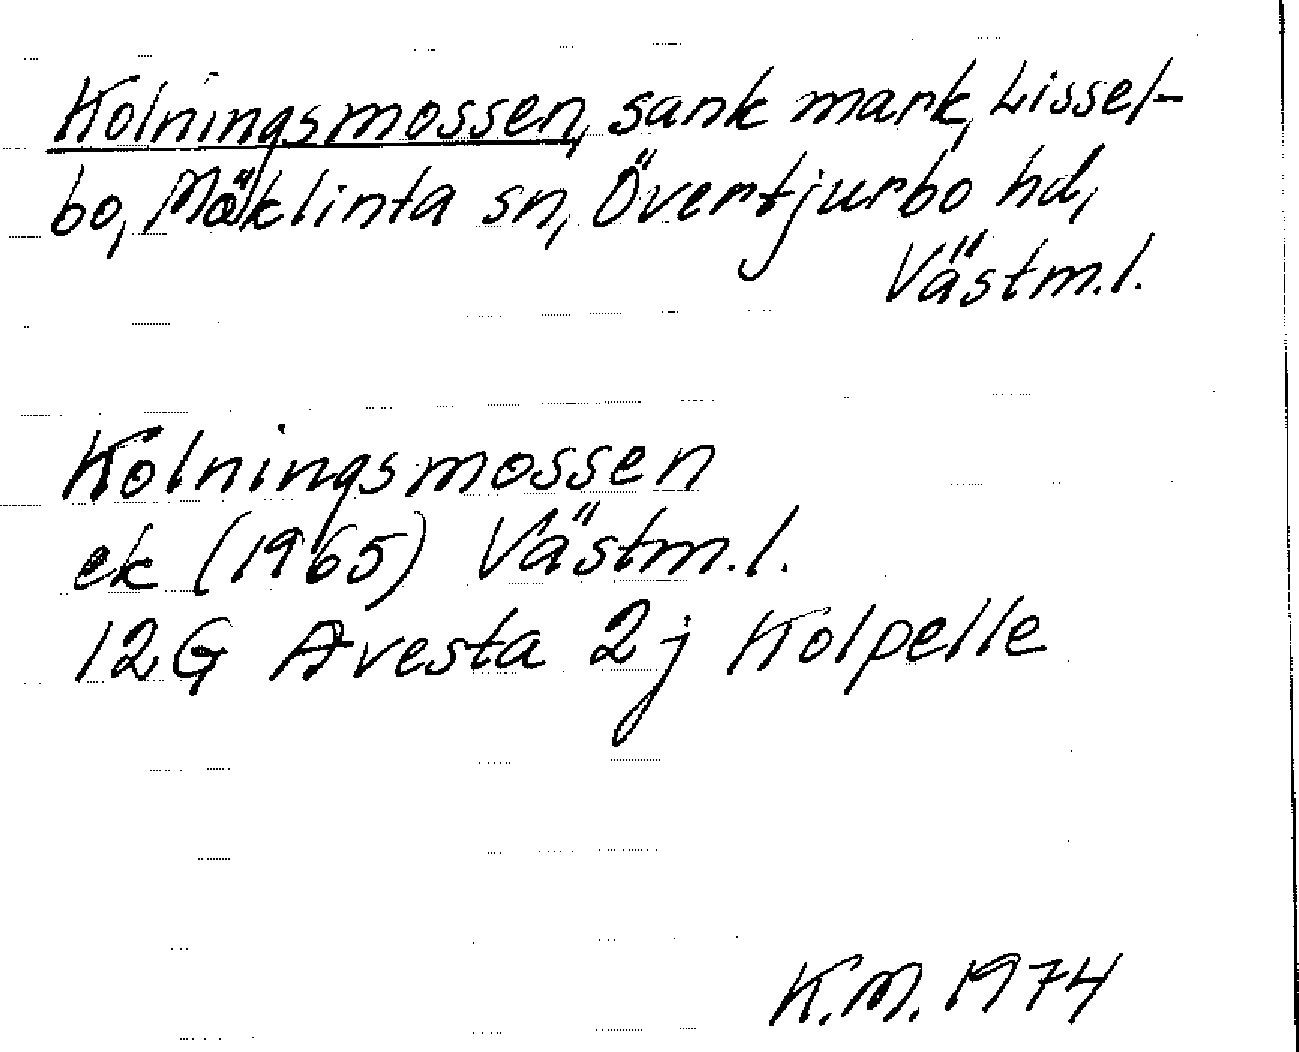 Kolningsmossen, sank mark, Lissel-
bo, Möklinta sn, Övertjurbo hd,
Västm.l.
Kolningsmossen
ek (1965) Västm.l.
12G Avesta 2j Kolpelle
K.M. 1974